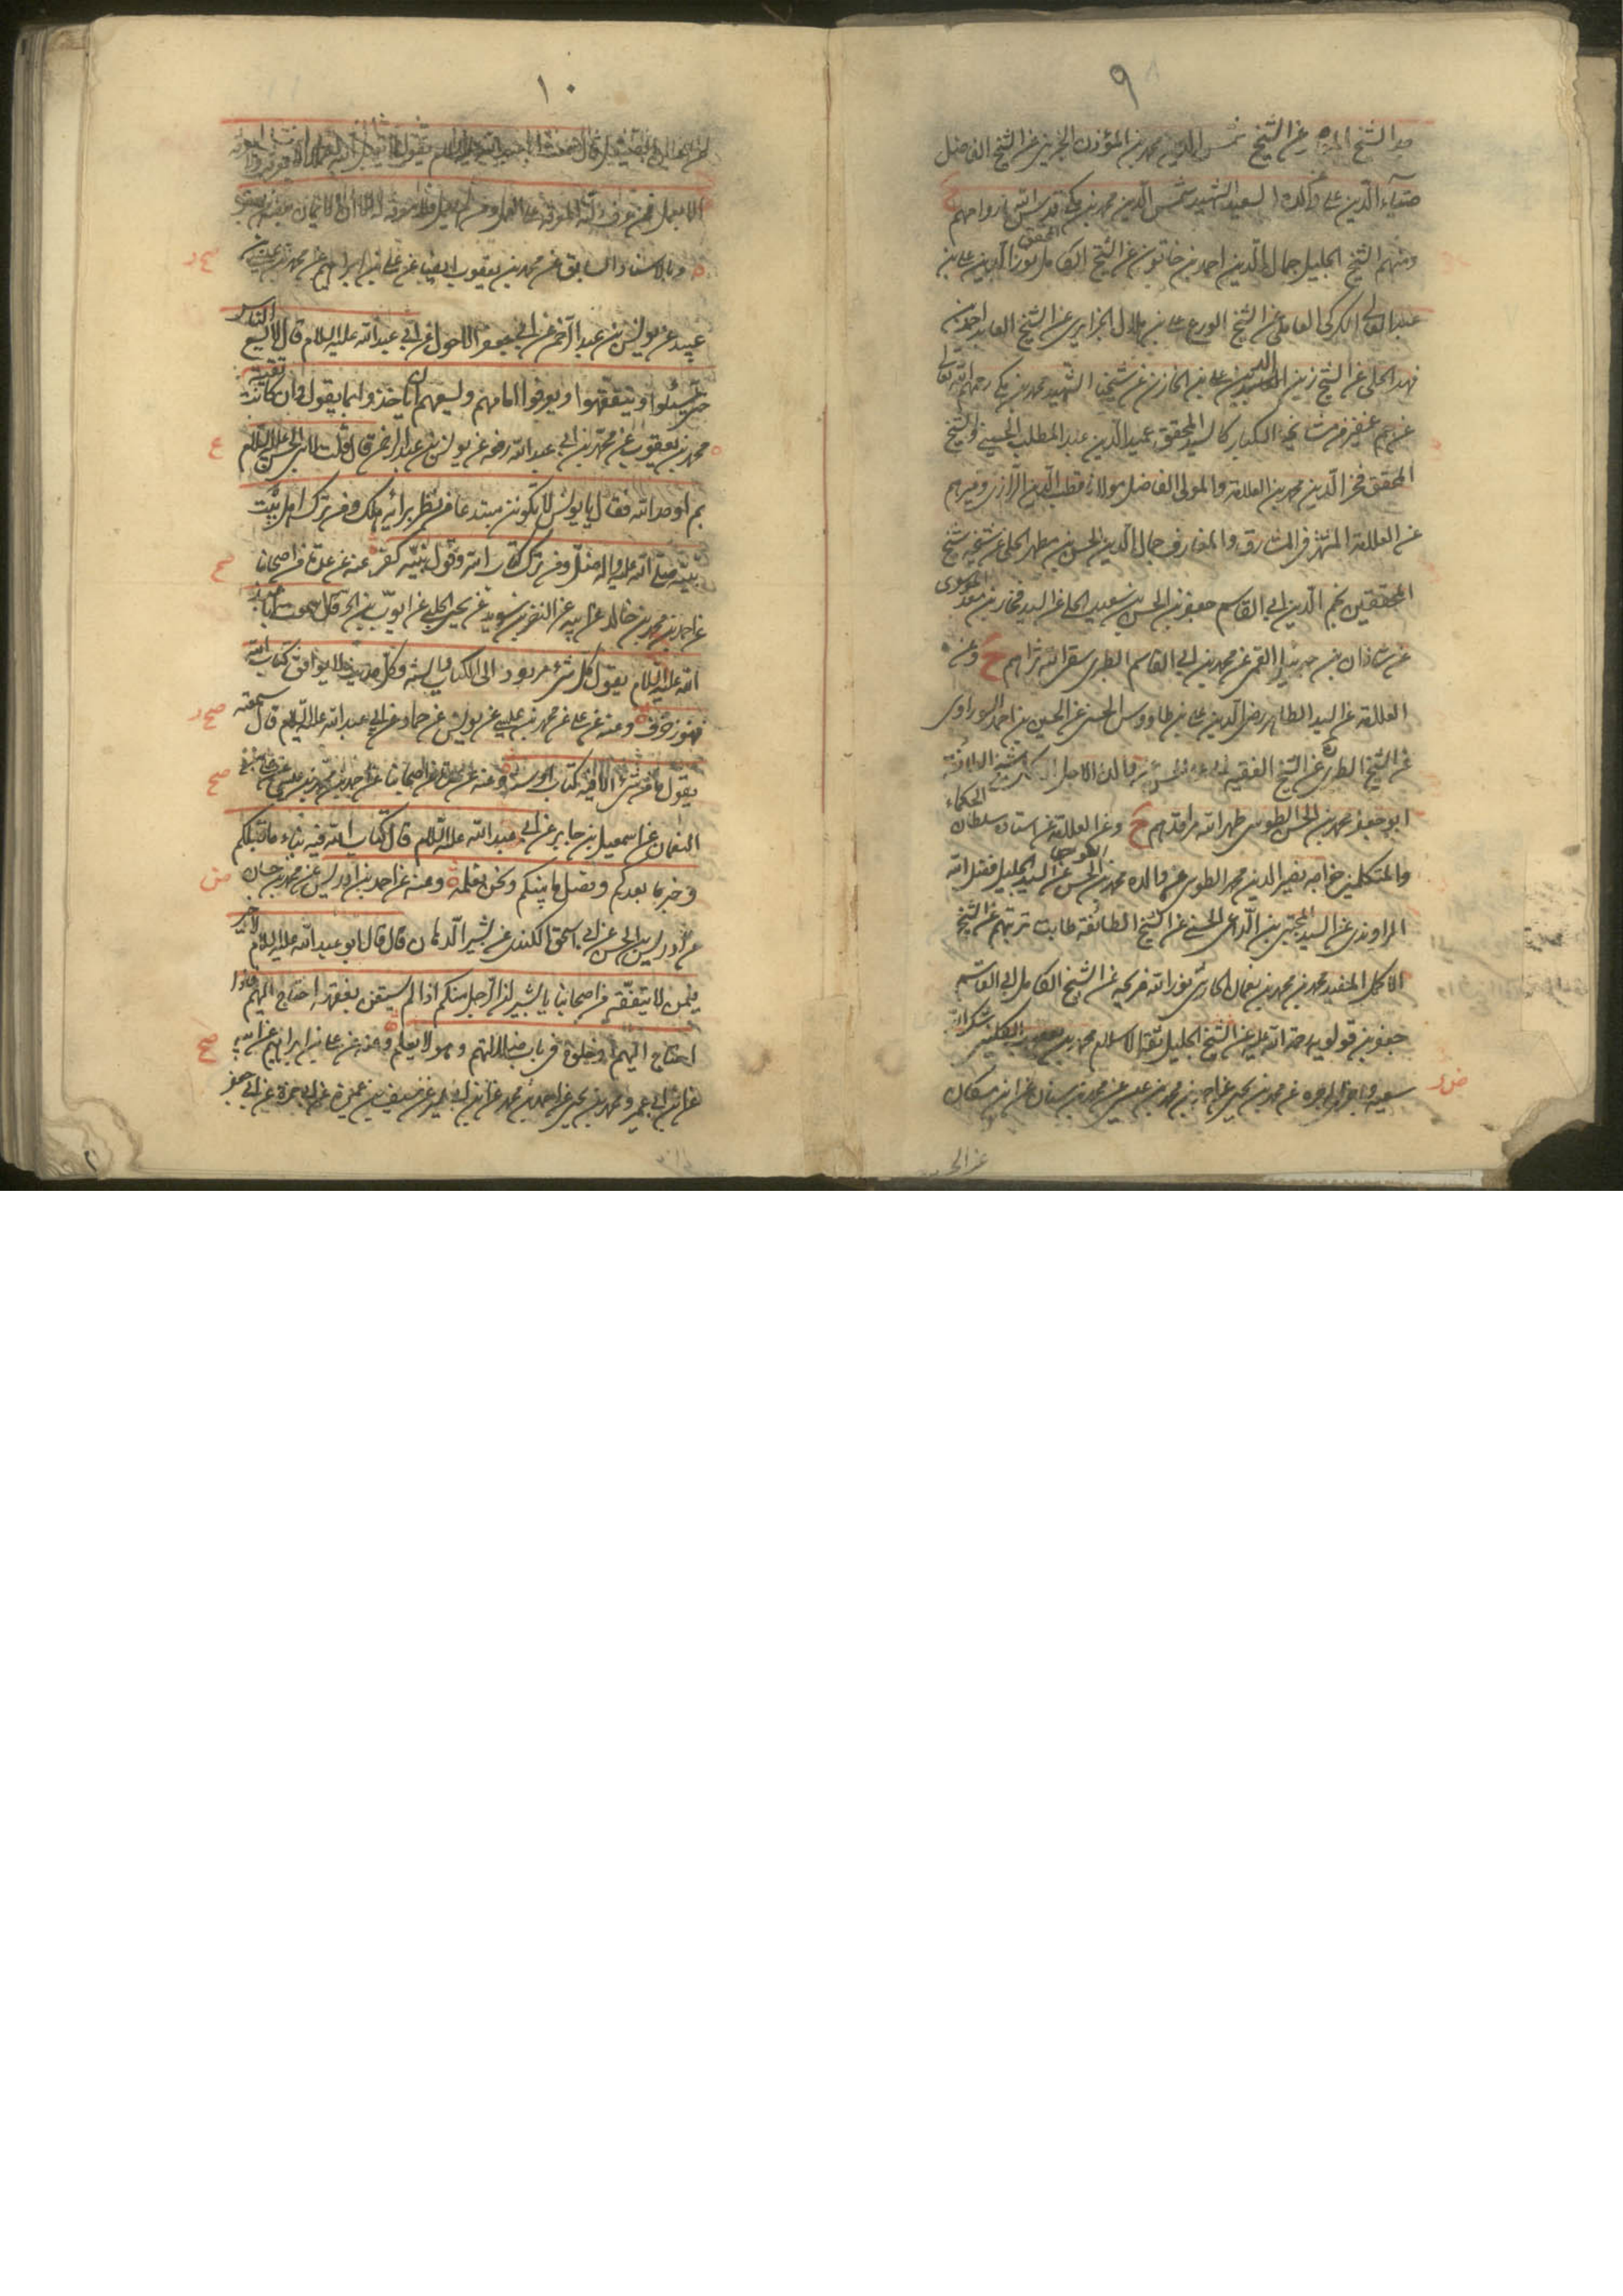 ٩
عن الشيخ شمس الدين محمد بن المؤذن الجزيني عن الشيخ الفاضل
ضياء الدين علي عن والده السعيد الشهيد شمس الدين محمد بن مكي قدس الله ارواحهم
ومنهم الشيخ الجليل جمال الدين احمد بن خاتون عن الشيخ المحقق نور الدين علي بن
عبد العالي الكركي العاملي عن الشيخ الورع علي بن هلال الجزايري عن الشيخ العابد احمد بن
فهد الحلي عن الشيخ زين الدين علي بن الخازن عن شيخنا الشهيد محمد بن مكي رحمهم الله تعالى
عن جم غفير من مشايخه الكبار كالسيد المحقق عميد الدين عبد المطلب الحسيني والشيخ
المحقق فخر الدين محمد بن العلامة والمولى الفاضل مولانا قطب الدين الرازي وغيرهم
عن العلامة المشتهر في المشارق والمغارب جمال الدين الحسن بن مطهر الحلي عن شيخه شيخ
المحققين نجم الدين ابي القاسم جعفر بن الحسن بن سعيد الحلي عن السيد فخار بن معد الموسوي
عن شاذان بن جبرئيل القمي عن محمد بن ابي القاسم الطبري سقى الله ثراهم ح وعن
العلامة عن السيد الطاهر رضي الدين علي بن طاووس الحسني عن الحسين بن احمد السوراوي
عن الشيخ الطبري عن الشيخ الفقيه ابي علي الحسن عن والده الاجل الاكمل شيخ الطائفة
ابو جعفر محمد بن الحسن الطوسي طهر الله مراقدهم ح وعن العلامة عن استاده سلطان الحكماء
والمتكلمين خواجه نصير الدين محمد الطوسي عن والده محمد بن الحسن عن السيد الجليل فضل الله
الراوندي عن السيد المجتبى بن الداعي الحسني عن الشيخ الطائفة طابت تربتهم عن الشيخ
الاكمل المفيد محمد بن محمد بن نعمان الحارثي نور الله ضريحه عن الشيخ الكامل ابي القاسم
جعفر بن قولويه رحمة الله عليه عن الشيخ الجليل ثقة الاسلام محمد بن يعقوب الكليني شكر الله
سعيه واجزل اجره عن محمد بن يحيى عن احمد بن محمد بن عيسى عن محمد بن سنان عن ابن مسكان
عن الحـ
١٠
قال سمعت ابا عبد الله عليه السلام يقول لا يقبل الله عملا الا بمعرفة ولا معرفة
الا بعمل فمن عرف دلته المعرفة على العمل ومن لم يعمل فلا معرفة له الا ان الايمان بعضه من بعض
وبالاسناد السابق عن محمد بن يعقوب ايضا عن علي بن ابراهيم عن محمد بن عيسى بن
عبيد عن يونس بن عبد الرحمن عن ابي جعفر الاحول عن ابي عبد الله عليه السلام قال لا يسع الناس
حتى يسئلوا ويتفقهوا ويعرفوا امامهم ويسعهم ان ياخذوا بما يقول وان كانت تقية
محمد بن يعقوب عن محمد بن ابي عبد الله رفعه عن يونس بن عبد الرحمن قال قلت لابي الحسن عليه السلام
بم اوحد الله فقال يا يونس لا تكونن مبتدعا من نظر برايه هلك ومن ترك اهل بيت
نبيه صلى الله عليه واله ضل ومن ترك كتاب الله وقول نبيه كفر عنه عن عدة من اصحابنا
عن احمد بن محمد بن خالد عن ابيه عن النضر بن سويد عن يحيى الحلبي عن ايوب بن الحر قال سمعت ابا عبد
الله عليه السلام يقول كل شيء مردود الى الكتاب والسنة وكل حديث لا يوافق كتاب الله
فهو زخرف وعنه عن علي عن محمد بن عيسى عن يونس عن حماد عن ابي عبد الله عليه السلام قال سمعته
يقول ما من شيء الا وفيه كتاب او سنة وعنه عن عدة من اصحابنا عن احمد بن محمد بن عيسى عن علي بن
النعمان عن اسمعيل بن جابر عن ابي عبد الله عليه السلام قال كتاب الله فيه نباء ما قبلكم
وخبر ما بعدكم وفصل ما بينكم ونحن نعلمه وعنه عن احمد بن ادريس عن محمد بن حسان
عن ادريس بن الحسن عن ابي اسحق الكندي عن بشير الدهان قال قال ابو عبد الله عليه السلام لا خير
فيمن لا يتفقه من اصحابنا يا بشير ان الرجل منكم اذا لم يستغن بفقهه احتاج اليهم فاذا
احتاج اليهم ادخلوه في باب ضلالتهم وهو لا يعلم وعنه عن علي بن ابراهيم عن ابيه
عن ابن ابي عمير ومحمد بن يحيى عن احمد بن محمد عن ابن ابي عمير عن سيف بن عميرة عن ابي حمزة عن ابي جعفر